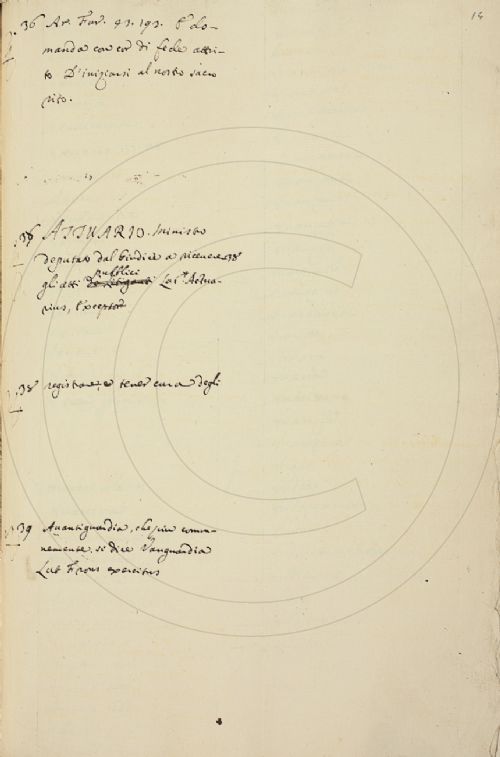 14
36 Ar. Fur. 43. 193. E do-
manda con cor di fede attri-
to D'iniziarsi al nostro sacro
rito.
38 ATTUARIO. Ministro
deputato dal Giudice a ricevere 38
pubblici
gli atti Lat. Actua-
rius, Exceptor
38 registrare, e tener cura degli
39 Avantiguardia, che più comu-
nemente si dice Vanguardia
Lat Frons exercitus